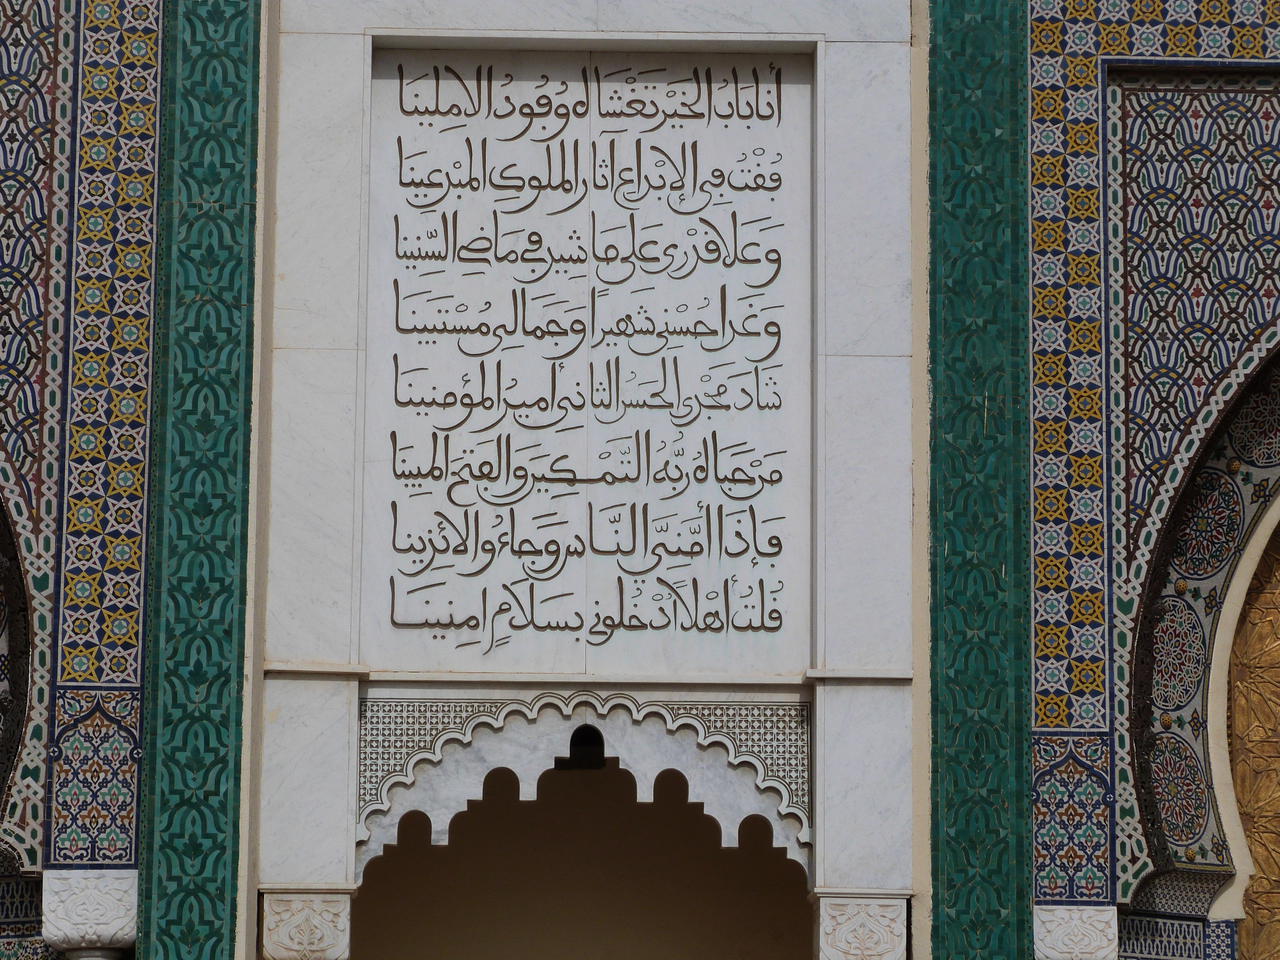 أنا باب الخير تغشاه وفود الآملينا
فقت في الإبداع آثار الملوك المبدعينا
وعلا قدري على ما شير في ماضي السنينا
وغدا حسني شهيرا وجمالي مستبينا
شاد مجدي الحسن الثاني أمير المؤمنينا
مرحبا له ربه التمكين والفتح المبينا
فإذا أمني الناس وجاءوا لائذينا
قلت أهلاً أدخلوني بسلام امنينا